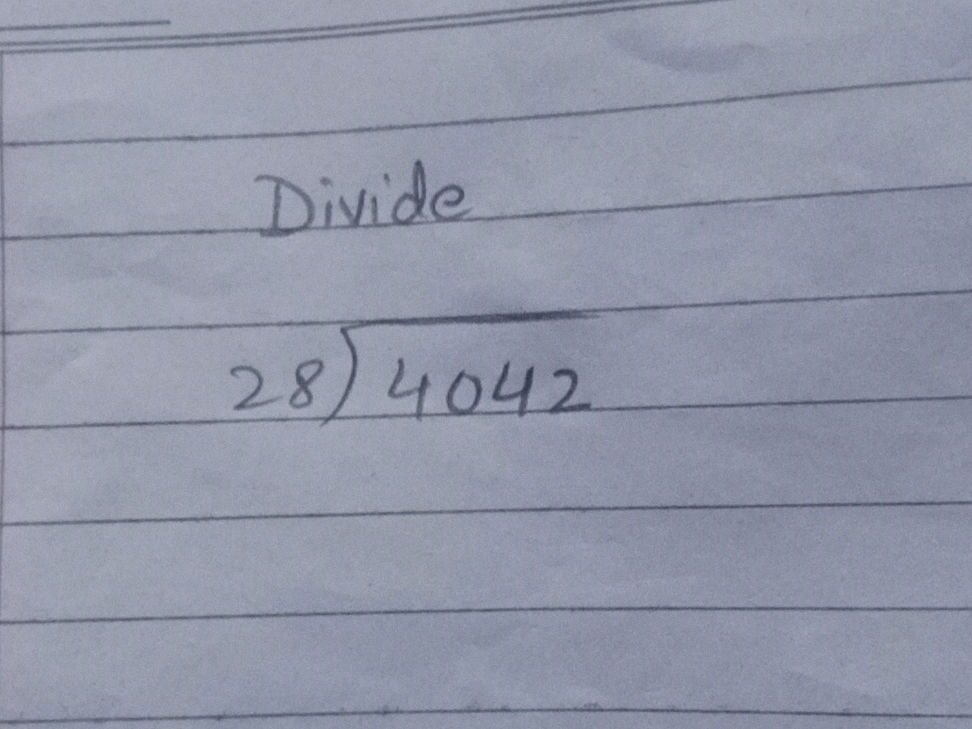 Divide
28)4042